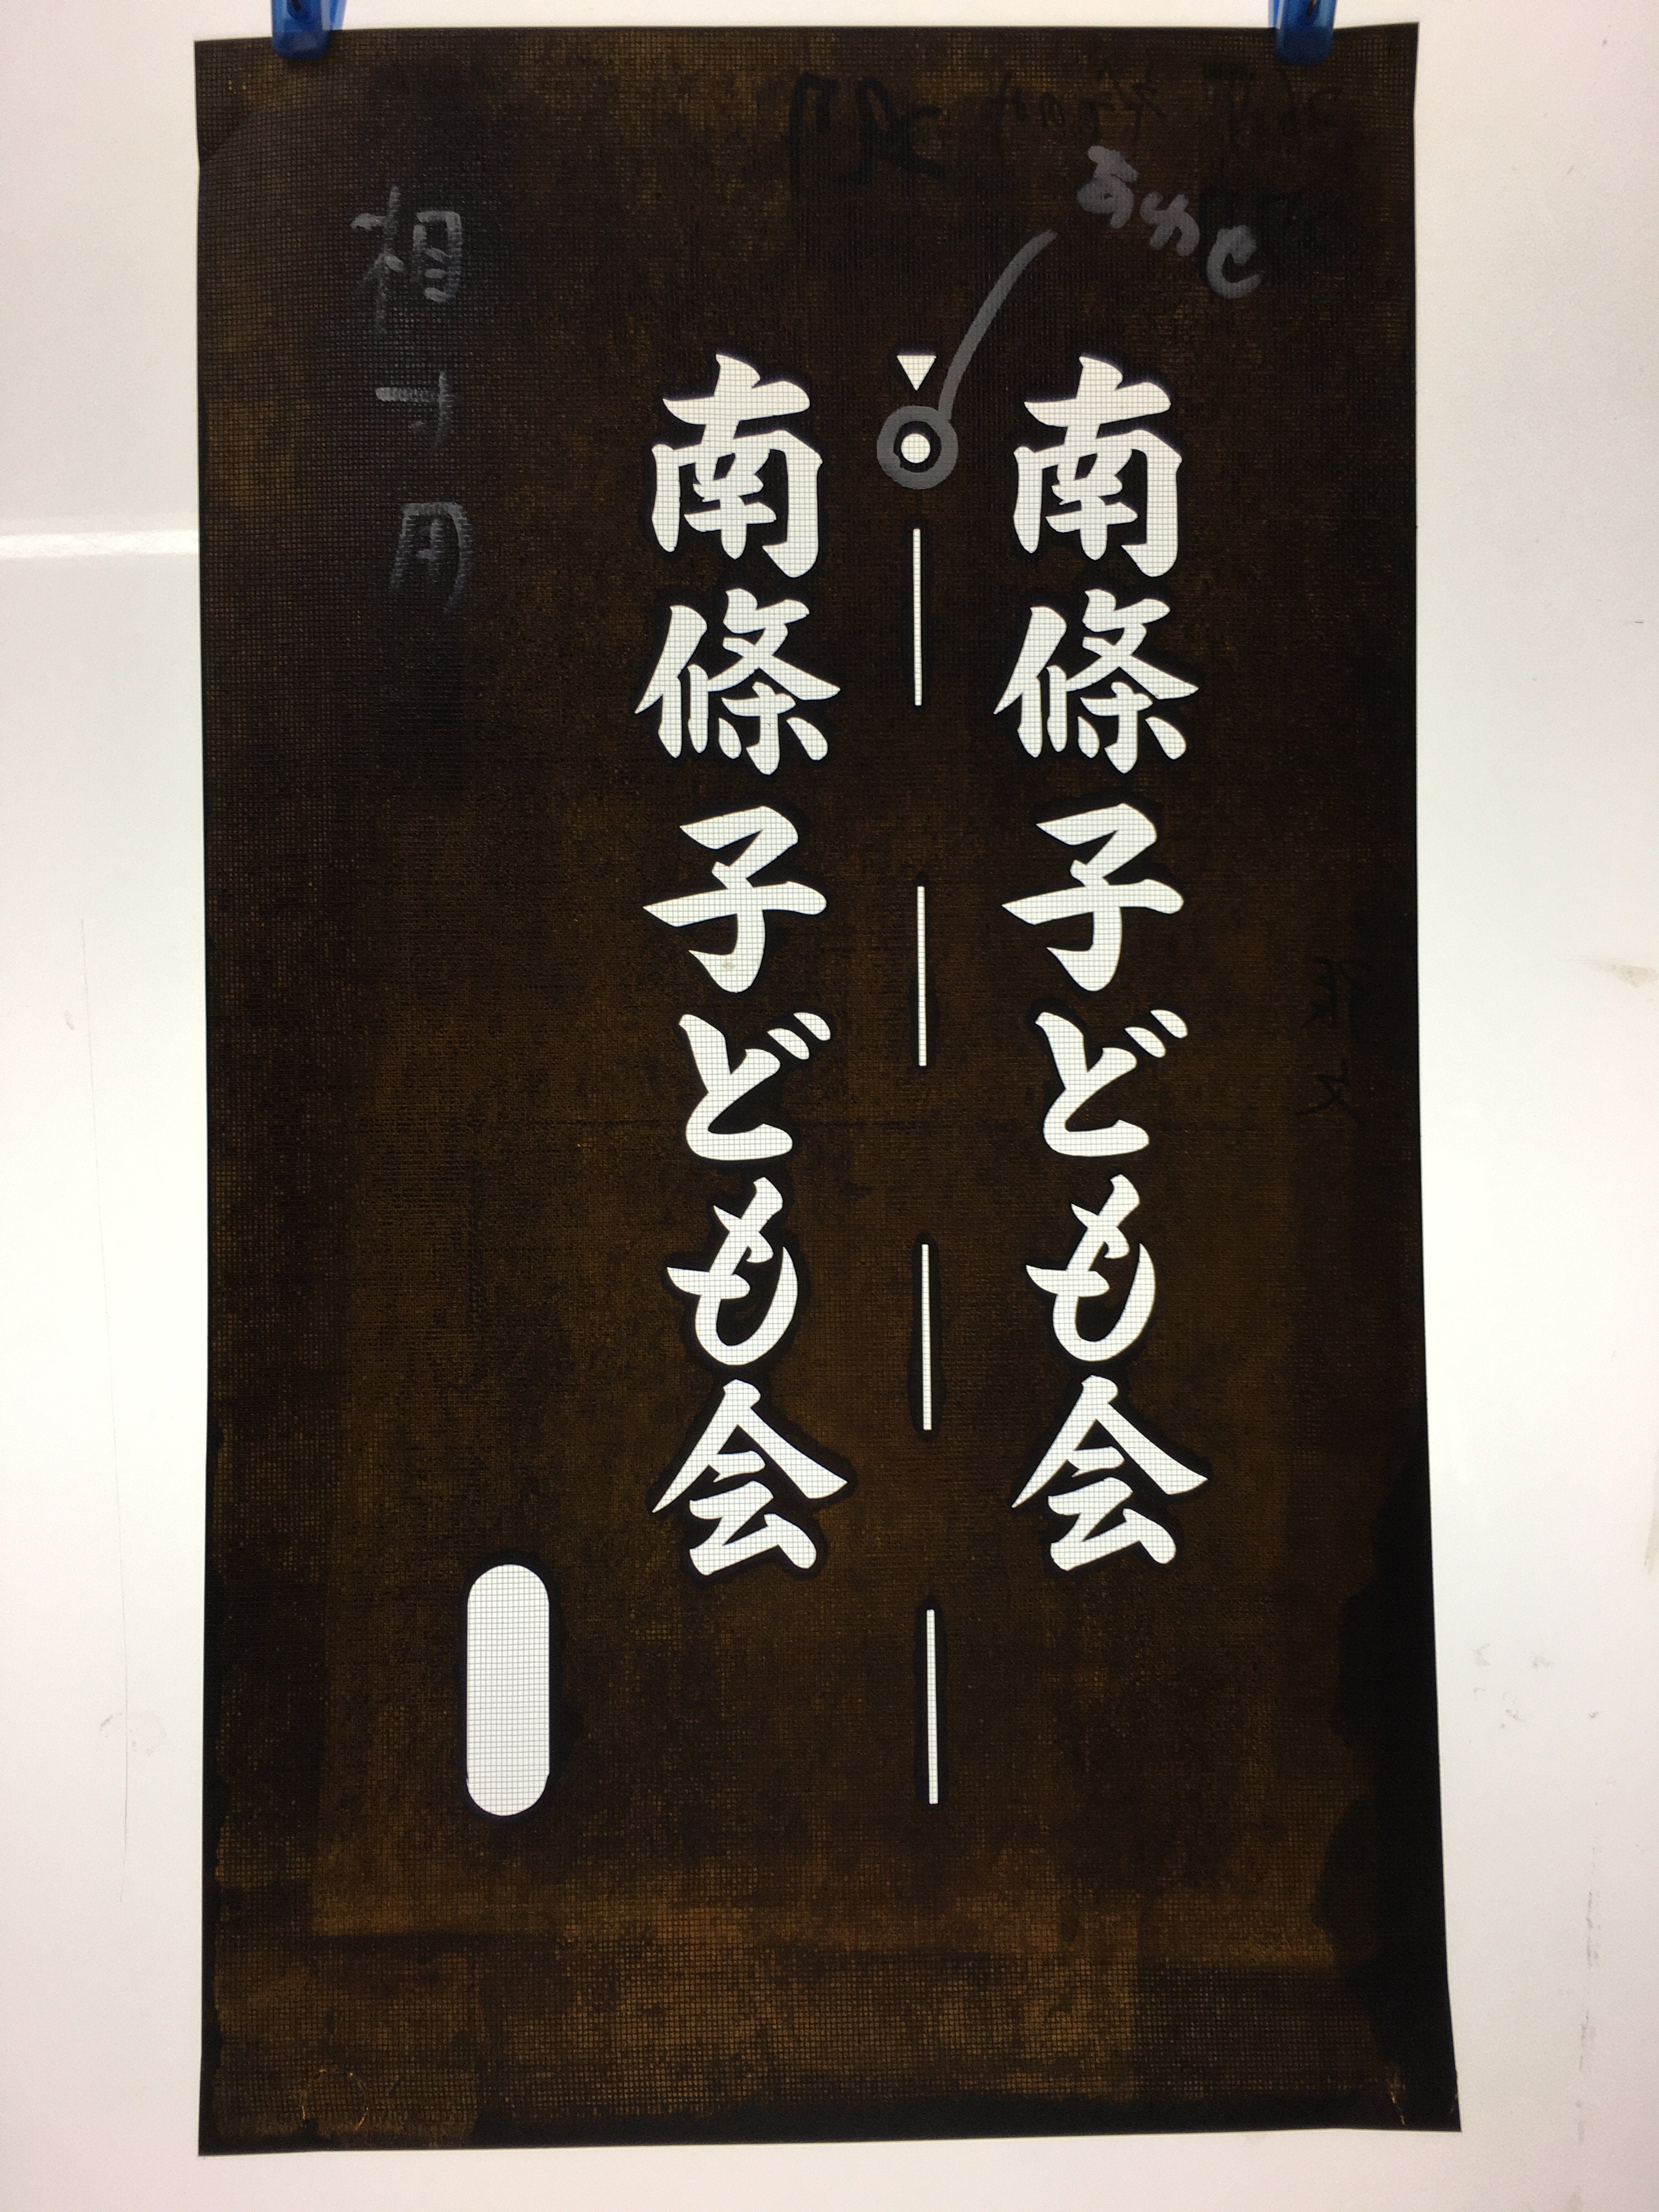 あわせ
南條子ども会
南條子ども会
相寸用